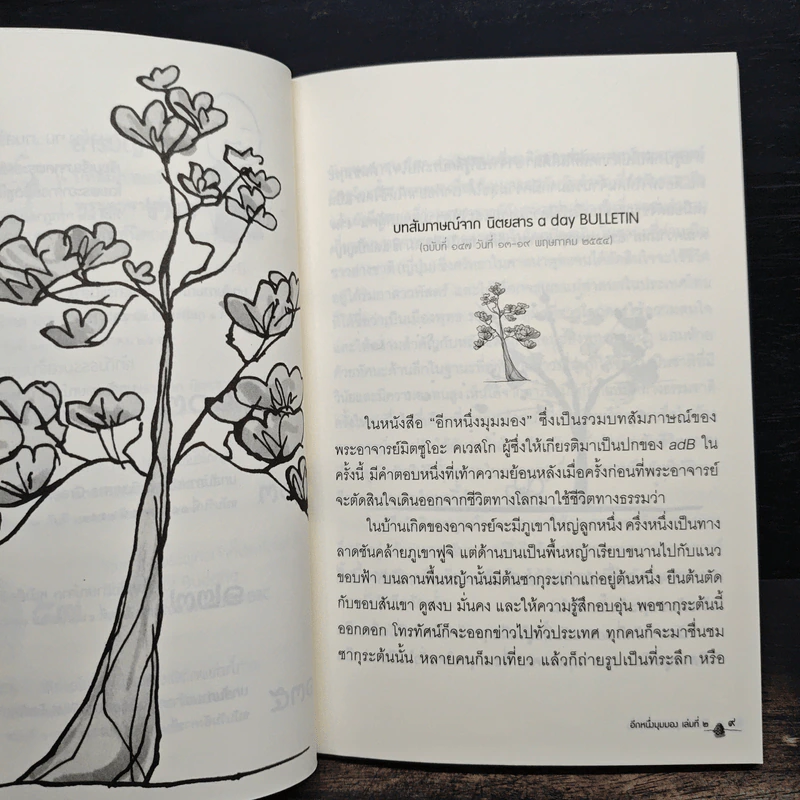 บทสัมภาษณ์จาก นิตยสาร a day BULLETIN
(ฉบับที่ ๑๔๗ วันที่ ๑๓-๑๙ พฤษภาคม ๒๕๕๔)
ในหนังสือ “อีกหนึ่งมุมมอง” ซึ่งเป็นรวมบทสัมภาษณ์ของ
พระอาจารย์มิตซูโอะ คเวสโก ผู้ซึ่งให้เกียรติมาเป็นปกของ adB ใน
ครั้งนี้ มีคำตอบหนึ่งที่เท้าความย้อนหลังเมื่อครั้งก่อนที่พระอาจารย์
จะตัดสินใจเดินออกจากชีวิตทางโลกมาใช้ชีวิตทางธรรมว่า
ในบ้านเกิดของอาจารย์จะมีภูเขาใหญ่ลูกหนึ่ง ครึ่งหนึ่งเป็นทาง
ลาดชันคล้ายภูเขาฟูจิ แต่ด้านบนเป็นพื้นหญ้าเรียบขนานไปกับแนว
ขอบฟ้า บนลานพื้นหญ้านั้นมีต้นซากุระเก่าแก่อยู่ต้นหนึ่ง ยืนต้นตัด
กับขอบสันเขา ดูสงบ มั่นคง และให้ความรู้สึกอบอุ่น พอซากุระต้นนี้
ออกดอก โทรทัศน์ก็จะออกข่าวไปทั่วประเทศ ทุกคนก็จะมาชื่นชม
ซากุระต้นนั้น หลายคนก็มาเที่ยว แล้วก็ถ่ายรูปเป็นที่ระลึก หรือ
อีกหนึ่งมุมมอง เล่มที่ ๒ ๙